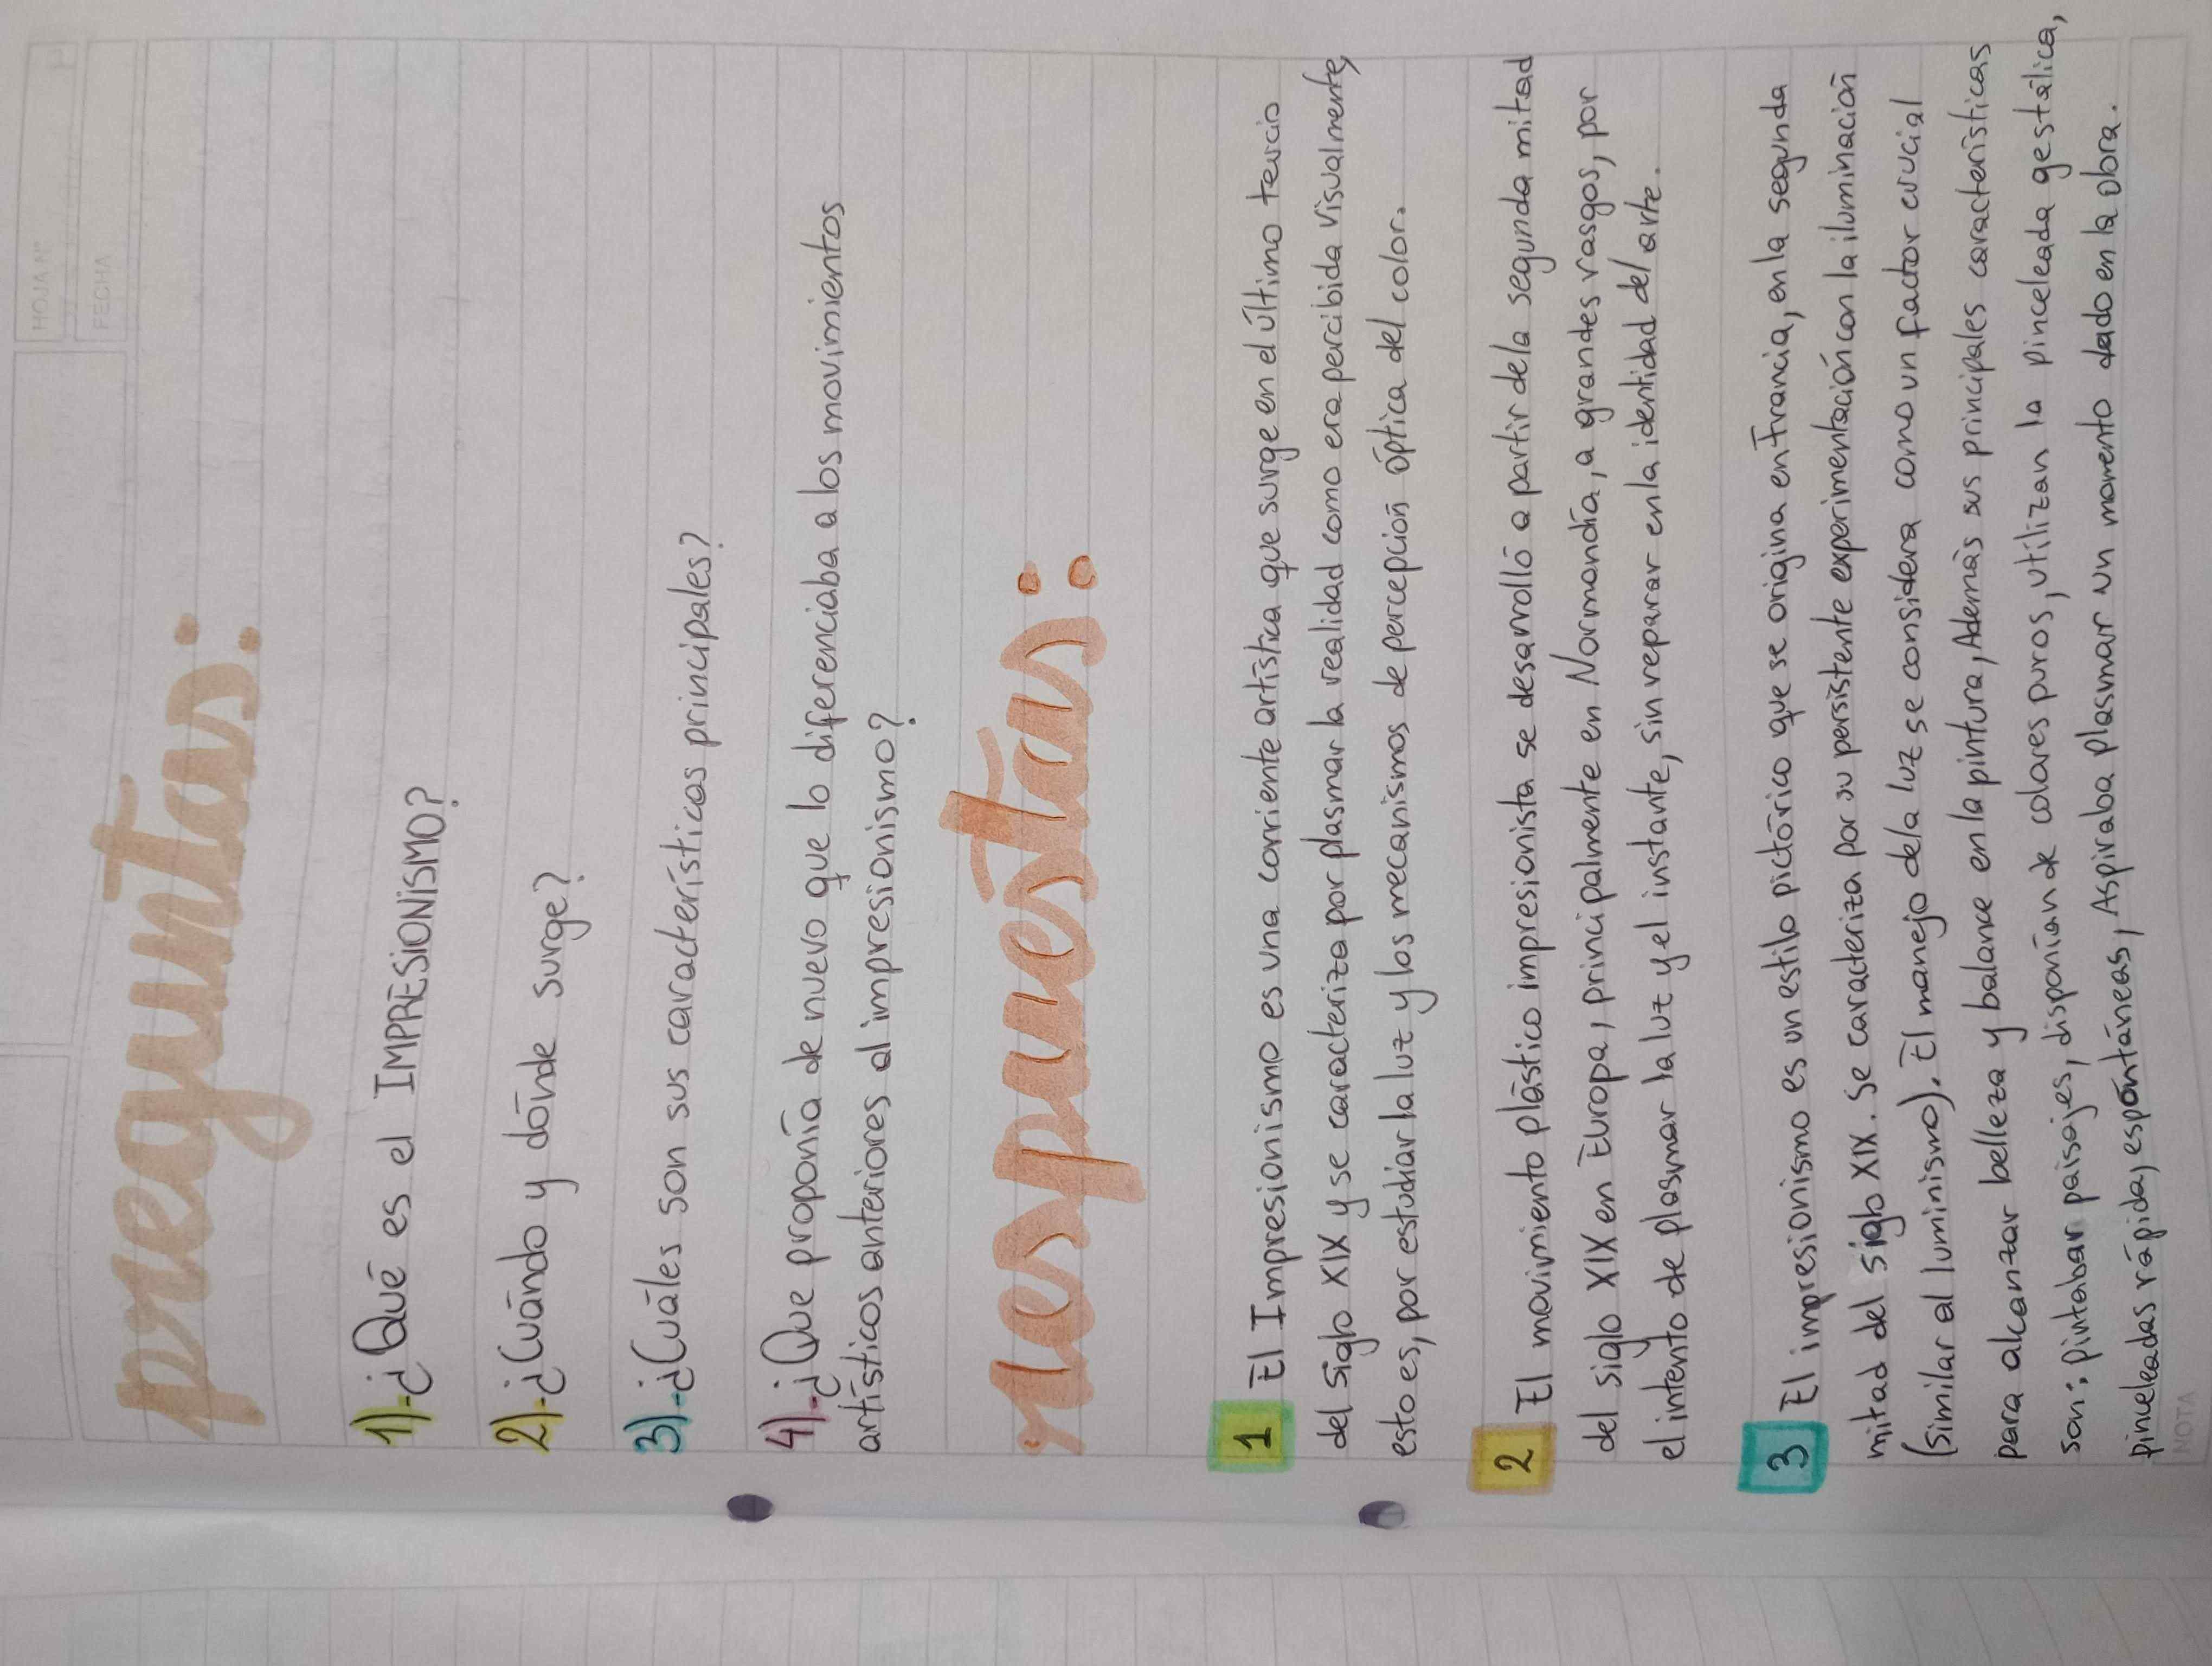 HOJA Nº
FECHA
preguntas:
1).-¿Qué es el IMPRESIONISMO?
2).-¿Cuándo y dónde surge?
3).-¿Cuáles son sus características principales?
4).-¿Que proponía de nuevo que lo diferenciaba a los movimientos
artísticos anteriores al impresionismo?
respuestas:
1 El Impresionismo es una corriente artística que surge en el último tercio
del siglo XIX y se caracteriza por plasmar la realidad como era percibida visualmente,
esto es, por estudiar la luz y los mecanismos de percepción óptica del color.
2 El movimiento plástico impresionista se desarrolló a partir de la segunda mitad
del siglo XIX en Europa, principalmente en Normandía, a grandes rasgos, por
el intento de plasmar la luz y el instante, sin reparar en la identidad del arte.
3 El impresionismo es un estilo pictórico que se origina en Francia, en la segunda
mitad del siglo XIX. Se caracteriza por su persistente experimentación con la iluminación
(similar al luminismo). El manejo de la luz se considera como un factor crucial
para alcanzar belleza y balance en la pintura, Además sus principales características
son: pintaban paisajes, disponían de colores puros, utilizan la pincelada gestálica,
pinceladas rápida, espontáneas, Aspiraba plasmar un momento dado en la obra.
NOTA